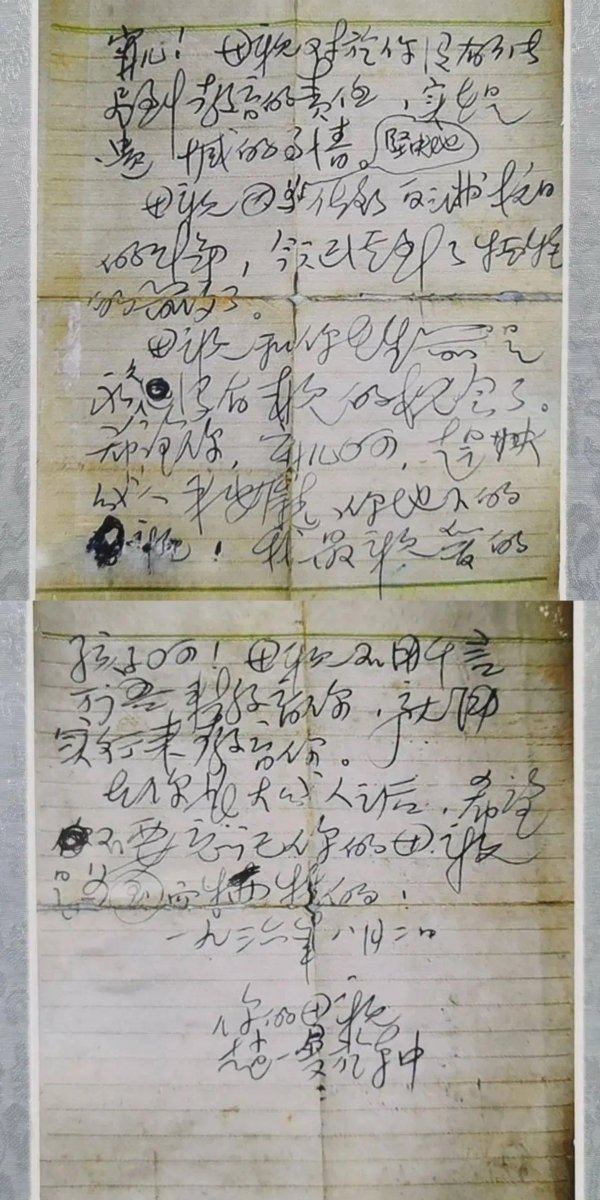 宁儿！母亲对於你没有能尽
到教育的责任，实在是
遗憾的事情。坚决地
母亲因为做了反满抗日
的斗争，今天已经到了牺牲
的前夕了。
母亲和你在生前是
永久没有再见的机会了。
希望你，宁儿啊，赶快
成人，来安慰你地下的
母亲！我最亲爱的
孩子啊！母亲不用千言
万语来教育你，就用
实行来教育你。
在你长大成人之后，希望
不要忘记你的母亲
是为国而牺牲的！
一九三六年八月二日
你的母亲
赵一曼於车中